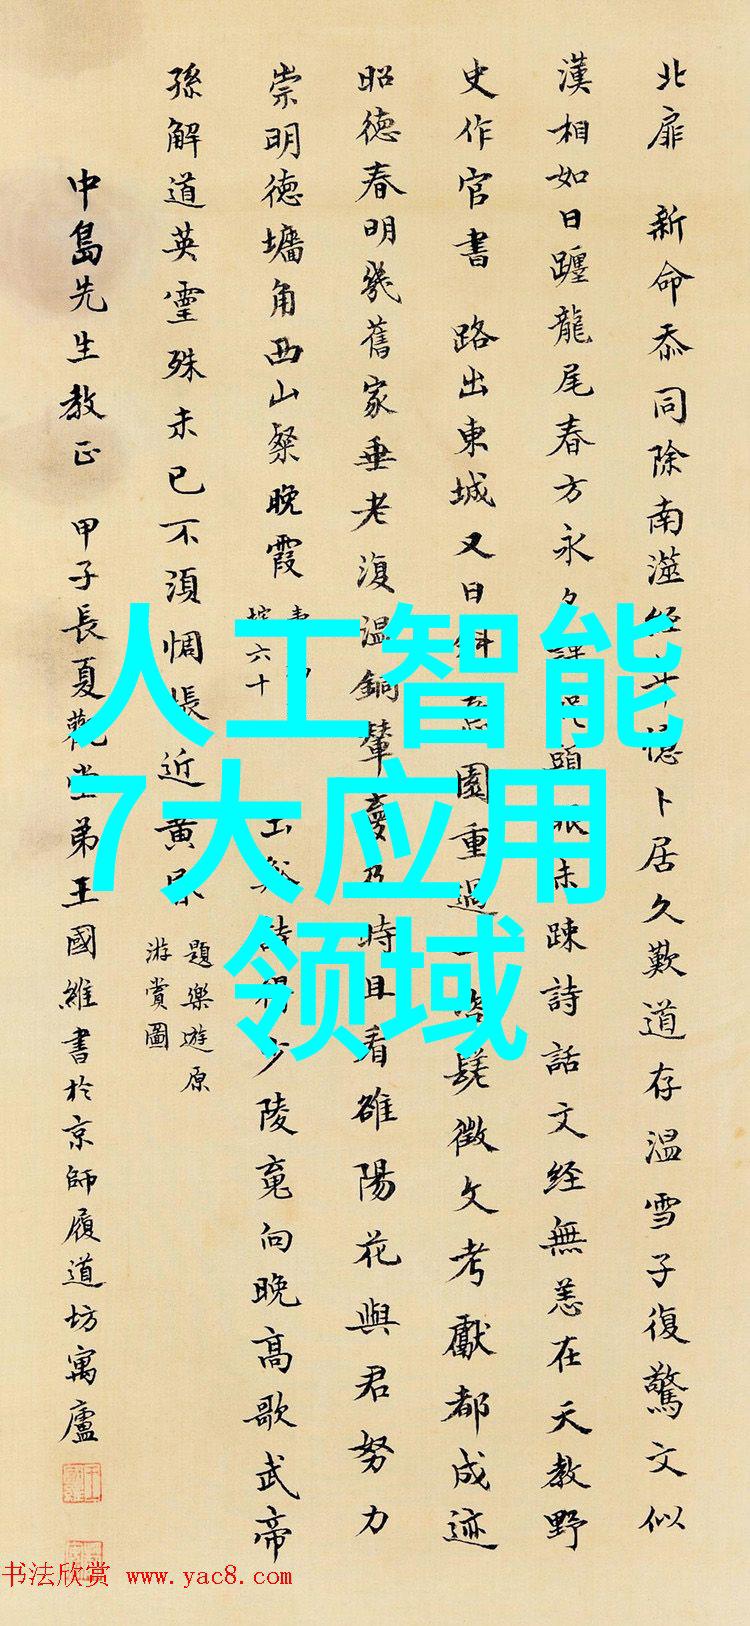 北扉 新命忝同除南澨經年憶卜居久歎道存温雪子復驚文似
漢相如日躔龍尾春方永夕頭未疎詩話文经無恙在天教野
史作官書 路出東城又日斜意園重過一髭徵文考獻都成迹
昭德春明幾舊家垂老復温銅輦夢時且看雒陽花與君努力
崇明德墻角西山粲晚霞 六十 詩少陵竟向晚高歌武帝
孫解道英靈殊未已不須惆悵近黄昏 題樂遊原
游賞圖
中島先生教正 甲子長夏觀堂弟王國維書於京師履道坊寓廬
人工智能
7大应用
领域
书法欣赏 www.yac8.com